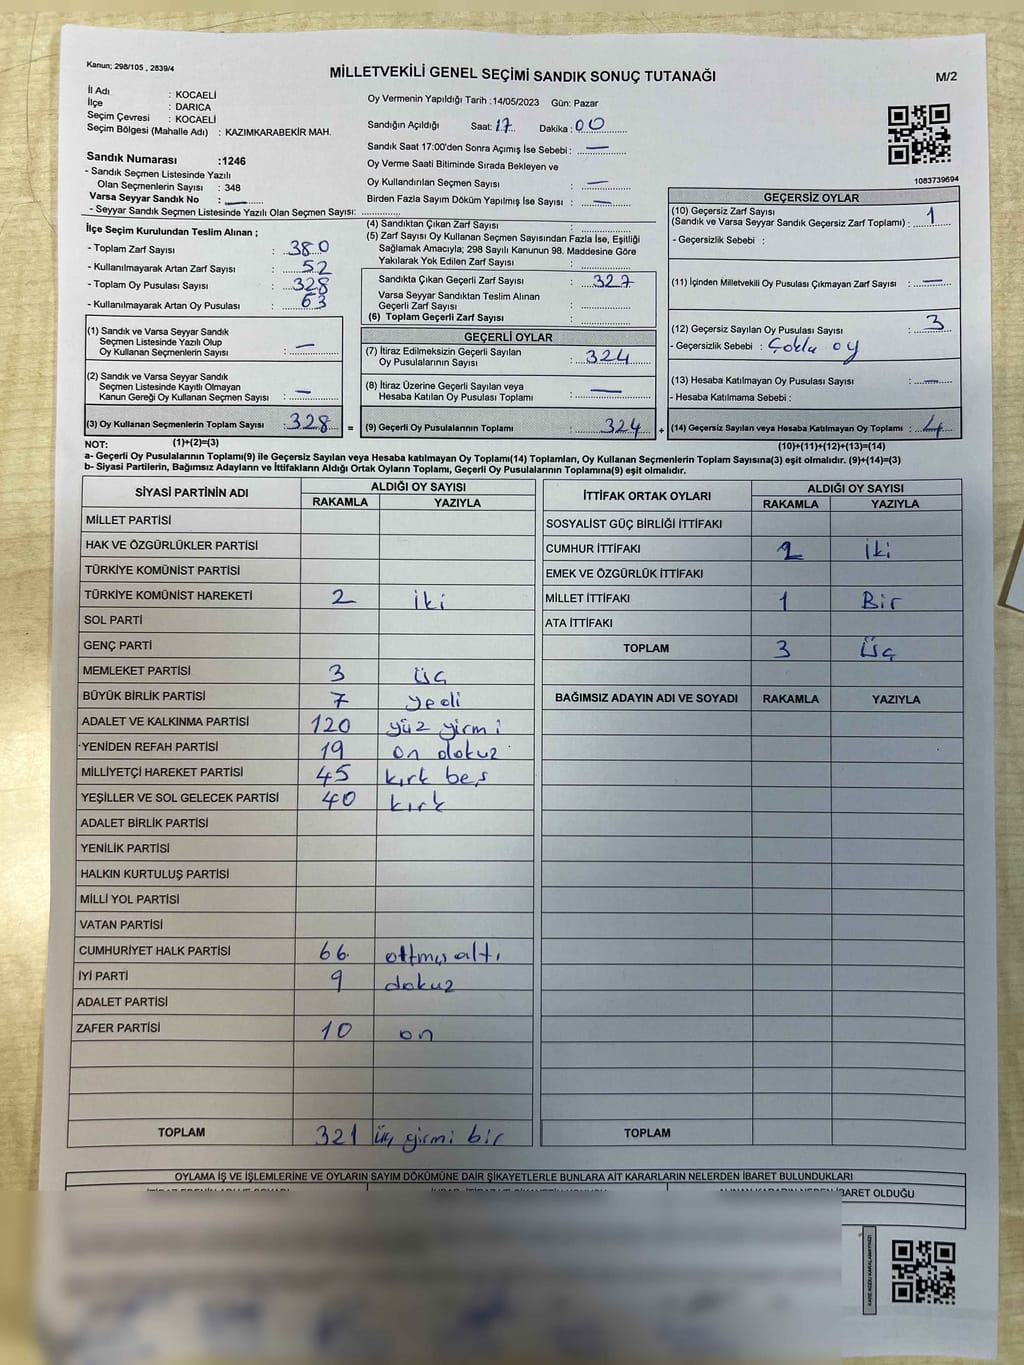 Kanun; 298/105 , 2839/4
MİLLETVEKİLİ GENEL SEÇİMİ SANDIK SONUÇ TUTANAĞI
M/2
İl Adı : KOCAELİ
İlçe : DARICA
Seçim Çevresi : KOCAELİ
Seçim Bölgesi (Mahalle Adı) : KAZIMKARABEKİR MAH.
Sandık Numarası :1246
- Sandık Seçmen Listesinde Yazılı
Olan Seçmenlerin Sayısı : 348
Varsa Seyyar Sandık No : —
- Seyyar Sandık Seçmen Listesinde Yazılı Olan Seçmen Sayısı:
Oy Vermenin Yapıldığı Tarih :14/05/2023 Gün: Pazar
Sandığın Açıldığı Saat: 17 Dakika : 00
Sandık Saat 17:00'den Sonra Açımış İse Sebebi : —
Oy Verme Saati Bitiminde Sırada Bekleyen ve
Oy Kullandırılan Seçmen Sayısı : —
Birden Fazla Sayım Döküm Yapılmış İse Sayısı : —
1083739694
İlçe Seçim Kurulundan Teslim Alınan ;
- Toplam Zarf Sayısı : 380
- Kullanılmayarak Artan Zarf Sayısı : 52
- Toplam Oy Pusulası Sayısı : 328
- Kullanılmayarak Artan Oy Pusulası : 63
(1) Sandık ve Varsa Seyyar Sandık
Seçmen Listesinde Yazılı Olup
Oy Kullanan Seçmenlerin Sayısı : —
(2) Sandık ve Varsa Seyyar Sandık
Seçmen Listesinde Kayıtlı Olmayan
Kanun Gereği Oy Kullanan Seçmen Sayısı : —
(3) Oy Kullanan Seçmenlerin Toplam Sayısı : 328 =
(4) Sandıktan Çıkan Zarf Sayısı :
(5) Zarf Sayısı Oy Kullanan Seçmen Sayısından Fazla İse, Eşitliği
Sağlamak Amacıyla; 298 Sayılı Kanunun 98. Maddesine Göre
Yakılarak Yok Edilen Zarf Sayısı :
Sandıkta Çıkan Geçerli Zarf Sayısı : 327
Varsa Seyyar Sandıktan Teslim Alınan
Geçerli Zarf Sayısı :
(6) Toplam Geçerli Zarf Sayısı :
GEÇERLİ OYLAR
(7) İtiraz Edilmeksizin Geçerli Sayılan
Oy Pusulalarının Sayısı : 324
(8) İtiraz Üzerine Geçerli Sayılan veya
Hesaba Katılan Oy Pusulası Toplamı : —
(9) Geçerli Oy Pusulalarının Toplamı : 324 +
GEÇERSİZ OYLAR
(10) Geçersiz Zarf Sayısı
(Sandık ve Varsa Seyyar Sandık Geçersiz Zarf Toplamı) : 1
- Geçersizlik Sebebi :
(11) İçinden Milletvekili Oy Pusulası Çıkmayan Zarf Sayısı : —
(12) Geçersiz Sayılan Oy Pusulası Sayısı : 3
- Geçersizlik Sebebi : Çoklu oy
(13) Hesaba Katılmayan Oy Pusulası Sayısı : —
- Hesaba Katılmama Sebebi :
(14) Geçersiz Sayılan veya Hesaba Katılmayan Oy Toplamı : 4
NOT: (1)+(2)=(3)
(10)+(11)+(12)+(13)=(14)
a- Geçerli Oy Pusulalarının Toplamı(9) ile Geçersiz Sayılan veya Hesaba katılmayan Oy Toplamı(14) Toplamları, Oy Kullanan Seçmenlerin Toplam Sayısına(3) eşit olmalıdır. (9)+(14)=(3)
b- Siyasi Partilerin, Bağımsız Adayların ve İttifakların Aldığı Ortak Oyların Toplamı, Geçerli Oy Pusulalarının Toplamına(9) eşit olmalıdır.
SİYASİ PARTİNİN ADI ALDIĞI OY SAYISI
RAKAMLA YAZIYLA
MİLLET PARTİSİ
HAK VE ÖZGÜRLÜKLER PARTİSİ
TÜRKİYE KOMÜNİST PARTİSİ
TÜRKİYE KOMÜNİST HAREKETİ 2 iki
SOL PARTİ
GENÇ PARTİ
MEMLEKET PARTİSİ 3 üç
BÜYÜK BİRLİK PARTİSİ 7 yedi
ADALET VE KALKINMA PARTİSİ 120 yüz yirmi
YENİDEN REFAH PARTİSİ 19 on dokuz
MİLLİYETÇİ HAREKET PARTİSİ 45 kırk beş
YEŞİLLER VE SOL GELECEK PARTİSİ 40 kırk
ADALET BİRLİK PARTİSİ
YENİLİK PARTİSİ
HALKIN KURTULUŞ PARTİSİ
MİLLİ YOL PARTİSİ
VATAN PARTİSİ
CUMHURİYET HALK PARTİSİ 66 altmış altı
İYİ PARTİ 9 dokuz
ADALET PARTİSİ
ZAFER PARTİSİ 10 on
TOPLAM 321 üç yirmi bir
İTTİFAK ORTAK OYLARI ALDIĞI OY SAYISI
RAKAMLA YAZIYLA
SOSYALİST GÜÇ BİRLİĞİ İTTİFAKI
CUMHUR İTTİFAKI 2 iki
EMEK VE ÖZGÜRLÜK İTTİFAKI
MİLLET İTTİFAKI 1 Bir
ATA İTTİFAKI
TOPLAM 3 Üç
BAĞIMSIZ ADAYIN ADI VE SOYADI RAKAMLA YAZIYLA
TOPLAM
OYLAMA İŞ VE İŞLEMLERİNE VE OYLARIN SAYIM DÖKÜMÜNE DAİR ŞİKAYETLERLE BUNLARA AİT KARARLARIN NELERDEN İBARET BULUNDUKLARI
ALINAN KARARIN NEDEN İBARET OLDUĞU